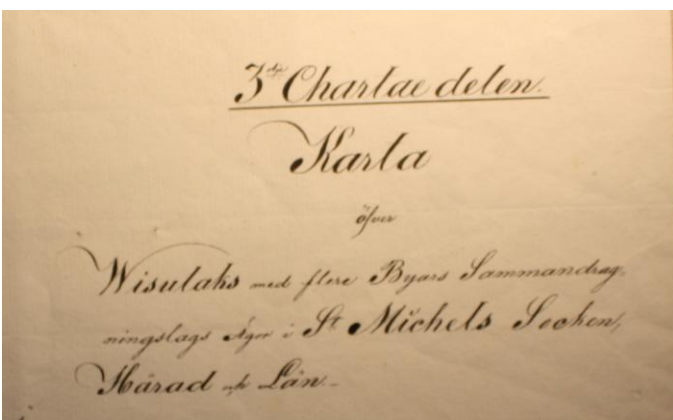 3dje Chartae delen.
Karta
öfver
Wisulaks med flere Byars Sammandrag-
ningslags Ägor i St Michels Socken,
Härad och Län.